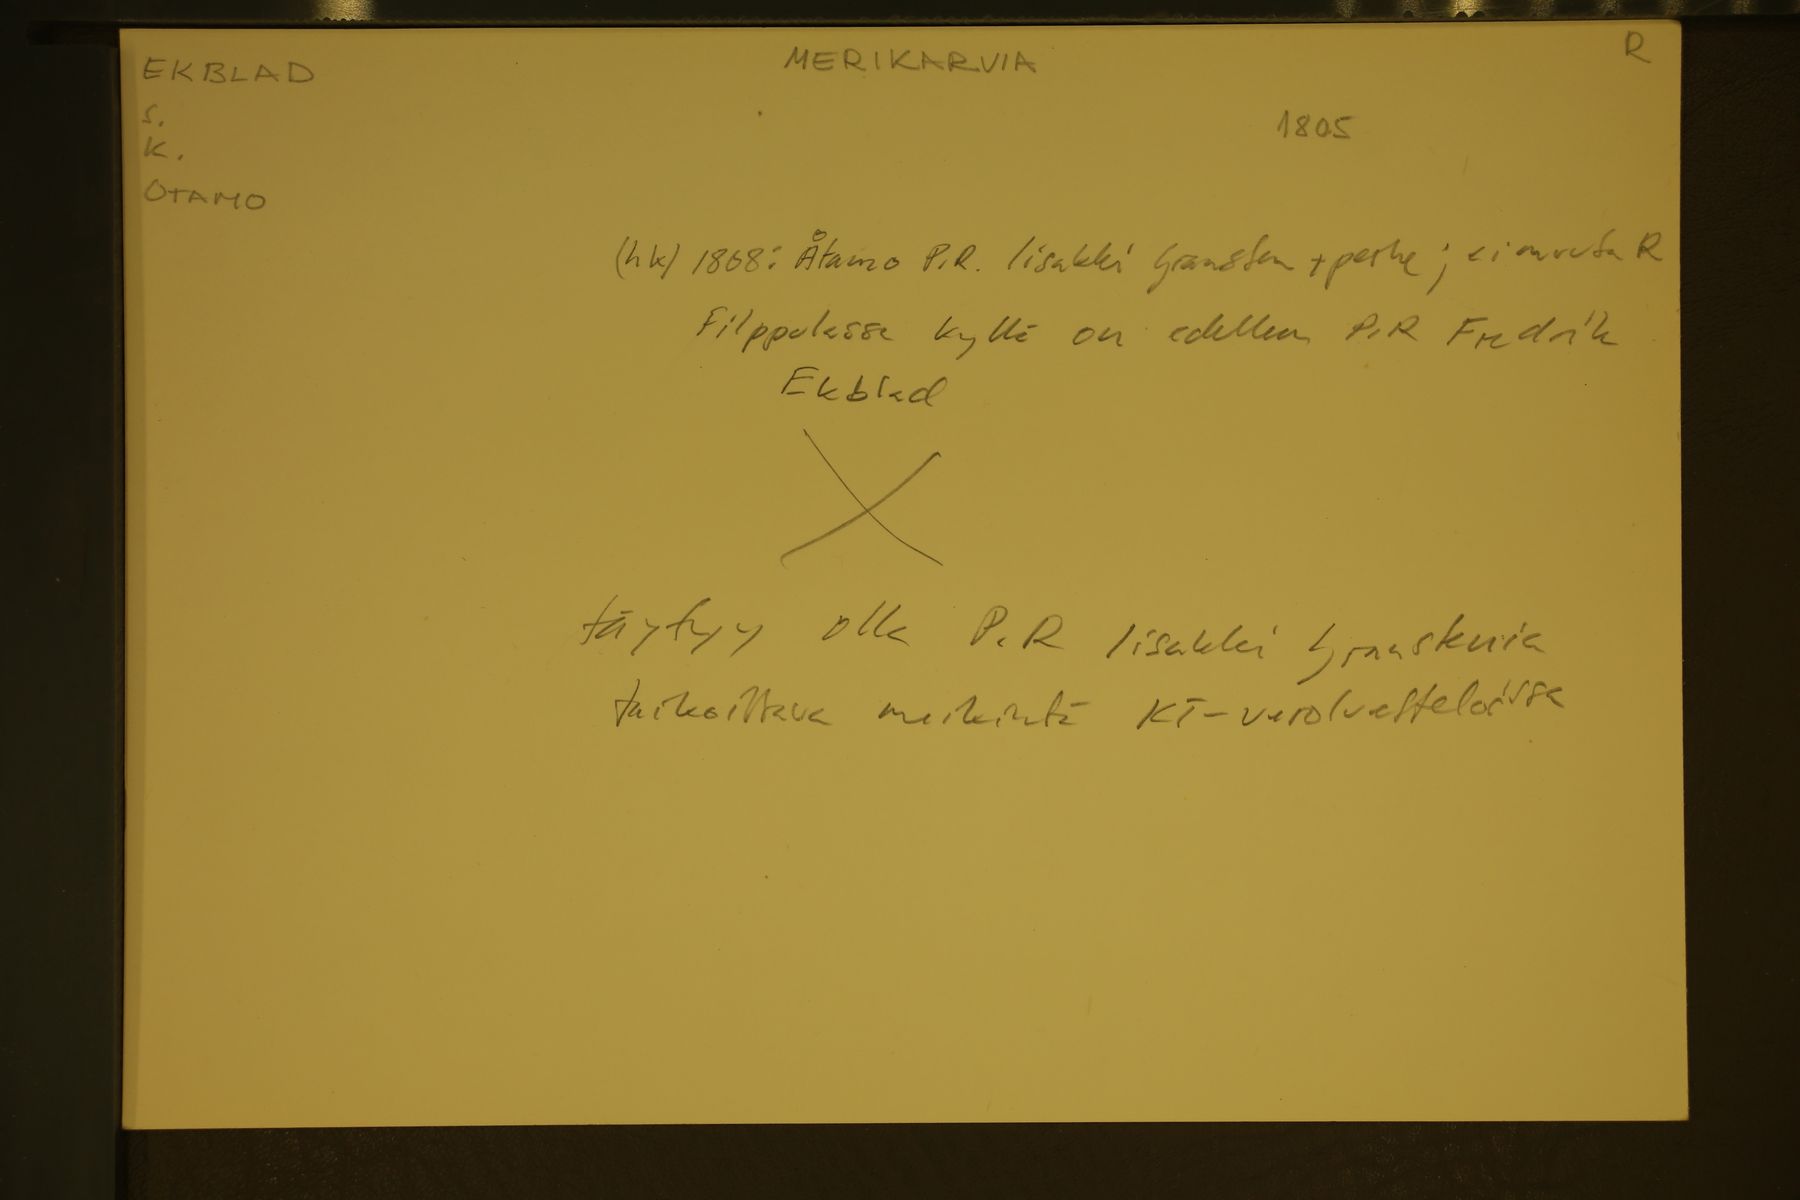 EKBLAD
MERIKARVIA
R
S.
1805
K.
OTAMO
(hk) 1808: Åtamo P.R. Iisakki Gransten + perhe; ei muuta R
Filppulassa kyllä on edelleen P.R Fredrik
Ekblad
täytyy olla P.R Iisakki Granstenia
tarkoittava merkintä KT-veroluettelossa